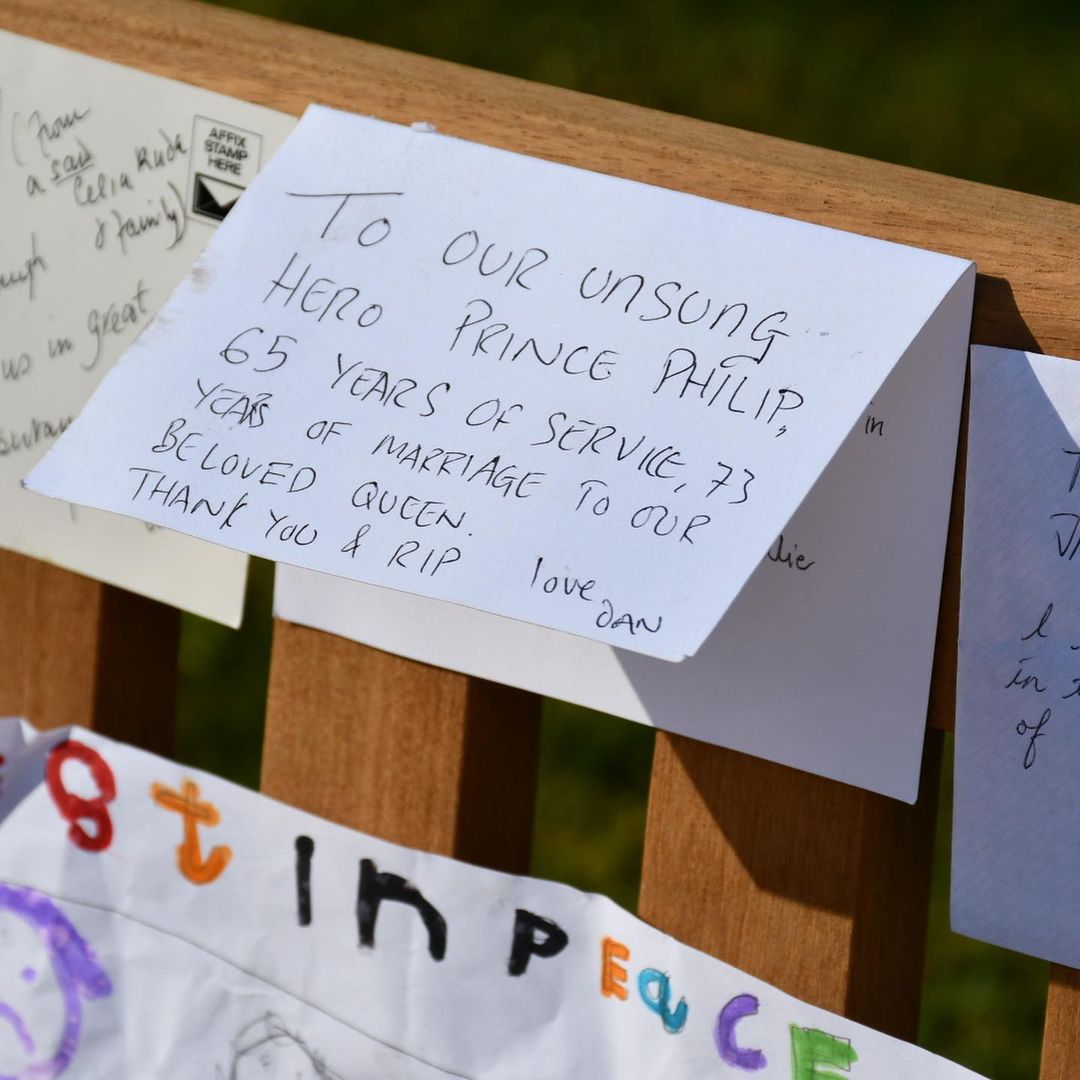 (from
a sad
Celia Ruda
& family)
AFFIX
STAMP
HERE
us in great
TO OUR UNSUNG
HERO PRINCE PHILIP,
65 YEARS OF SERVICE, 73
YEARS OF MARRIAGE TO OUR
BELOVED QUEEN.
THANK YOU & RIP
love
DAN
in
I
in
of
st in PEaCE